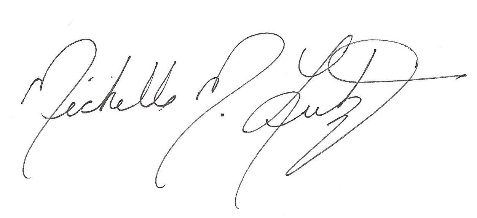 Michelle M. Lutz